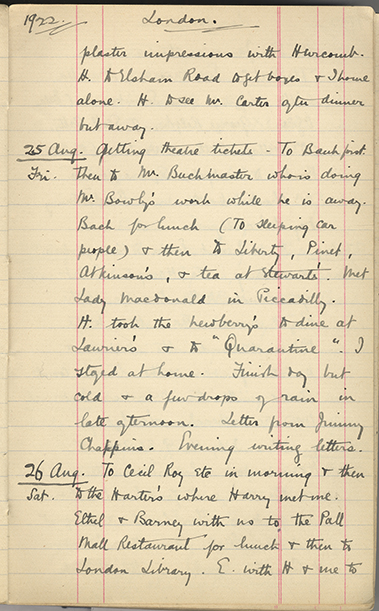 1922. London.
plaster impressions with Hurcomb.
H. to Elsham Road to get boxes & I home
alone. H. to see Mr. Carter after dinner
but away.
25 Aug. Getting theatre tickets - To Bank first
Fri. then to Mr. Buckmaster who is doing
Mr. Bowly's work while he is away.
Back for lunch (To sleeping car
people) & then to Liberty, Pinet,
Atkinson's, & tea at Stewarts. Met
Lady Macdonald in Piccadilly.
H. took the Newberry's to dine at
Laurier's & to "Quarantine". I
stayed at home. Finish day but
cold & a few drops of rain in
late afternoon. Letter from Jimmy
Chappins. Evening writing letters.
26 Aug. To Cecil Roy etc in morning & then
Sat. to the Harter's where Harry met me.
Ethel & Barney with us to the Pall
Mall Restaurant for lunch & then to
London Library. E. with H & me to